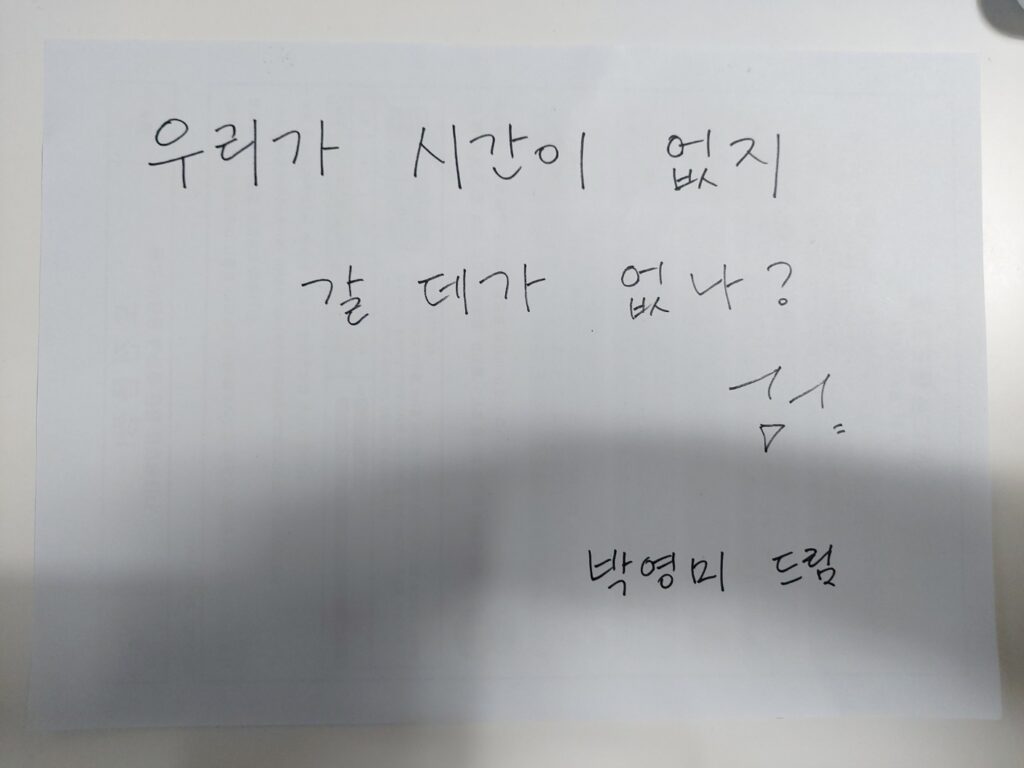 우리가 시간이 없지
갈 데가 없나?
박영미 드림